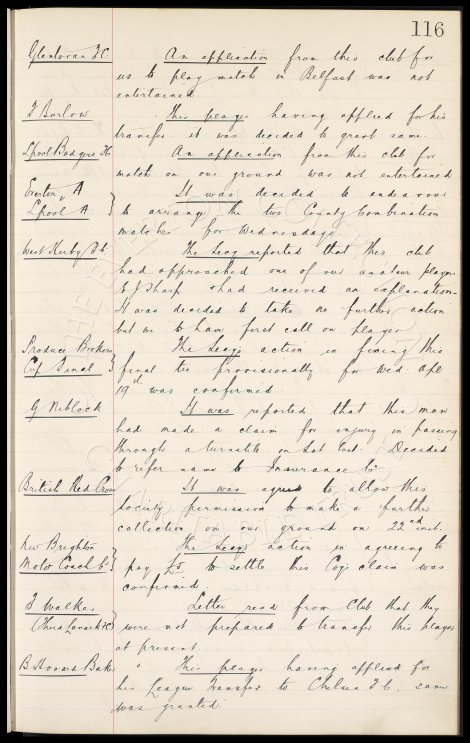 116
Glentoran F C An application from this club for
us to play match in Belfast was not
entertained
F Barlow This player having applied for his
transfer it was decided to grant same.
Lpool Badgers FC An application from this club for
match on our ground was not entertained
Everton A It was decided to endeavour
v
Lpool A. to arrange the two County Combination
matches for Wednesdays.
West Kirby F.C. The Secy reported that this club
had approached one of our amateur players
E J Sharp & had received an explanation
It was decided to take no further action
but we to have first call on player
Produce Brokers The Secy's action in fixing this
Cup Final final tie provisionally for Wed. Apl
19th was confirmed.
G Niblock It was reported that this man
had made a claim for injury in passing
through a turnstile on Sat last. Decided
to refer same to Insurance Co
British Red Cross It was agreed to allow this
society permission to make a further
collection on our ground on 22nd inst.
New Brighton The Secy's action in agreeing to
Motor Coach Co pay £5 to settle this Coy's claim was
confirmed.
T Walker Letter read from Club that they
were not prepared to transfer this player
at present.
B Howard Baker This player having applied for
his League transfer to Chelsea F.C. same
was granted.